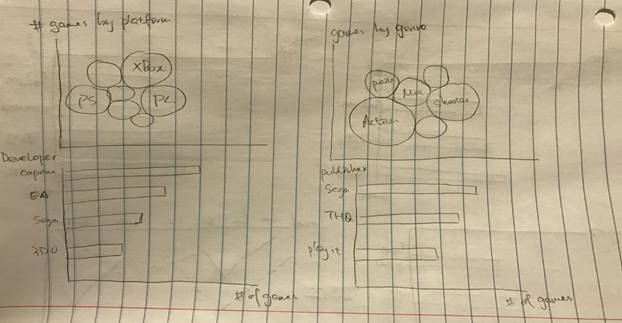 # games by platform
XBox
PS
PC
Developer
capcom
EA
Sega
3DO
# of games
games by genre
Misc
Shooter
Action
publisher
Sega
THQ
play it
# of games